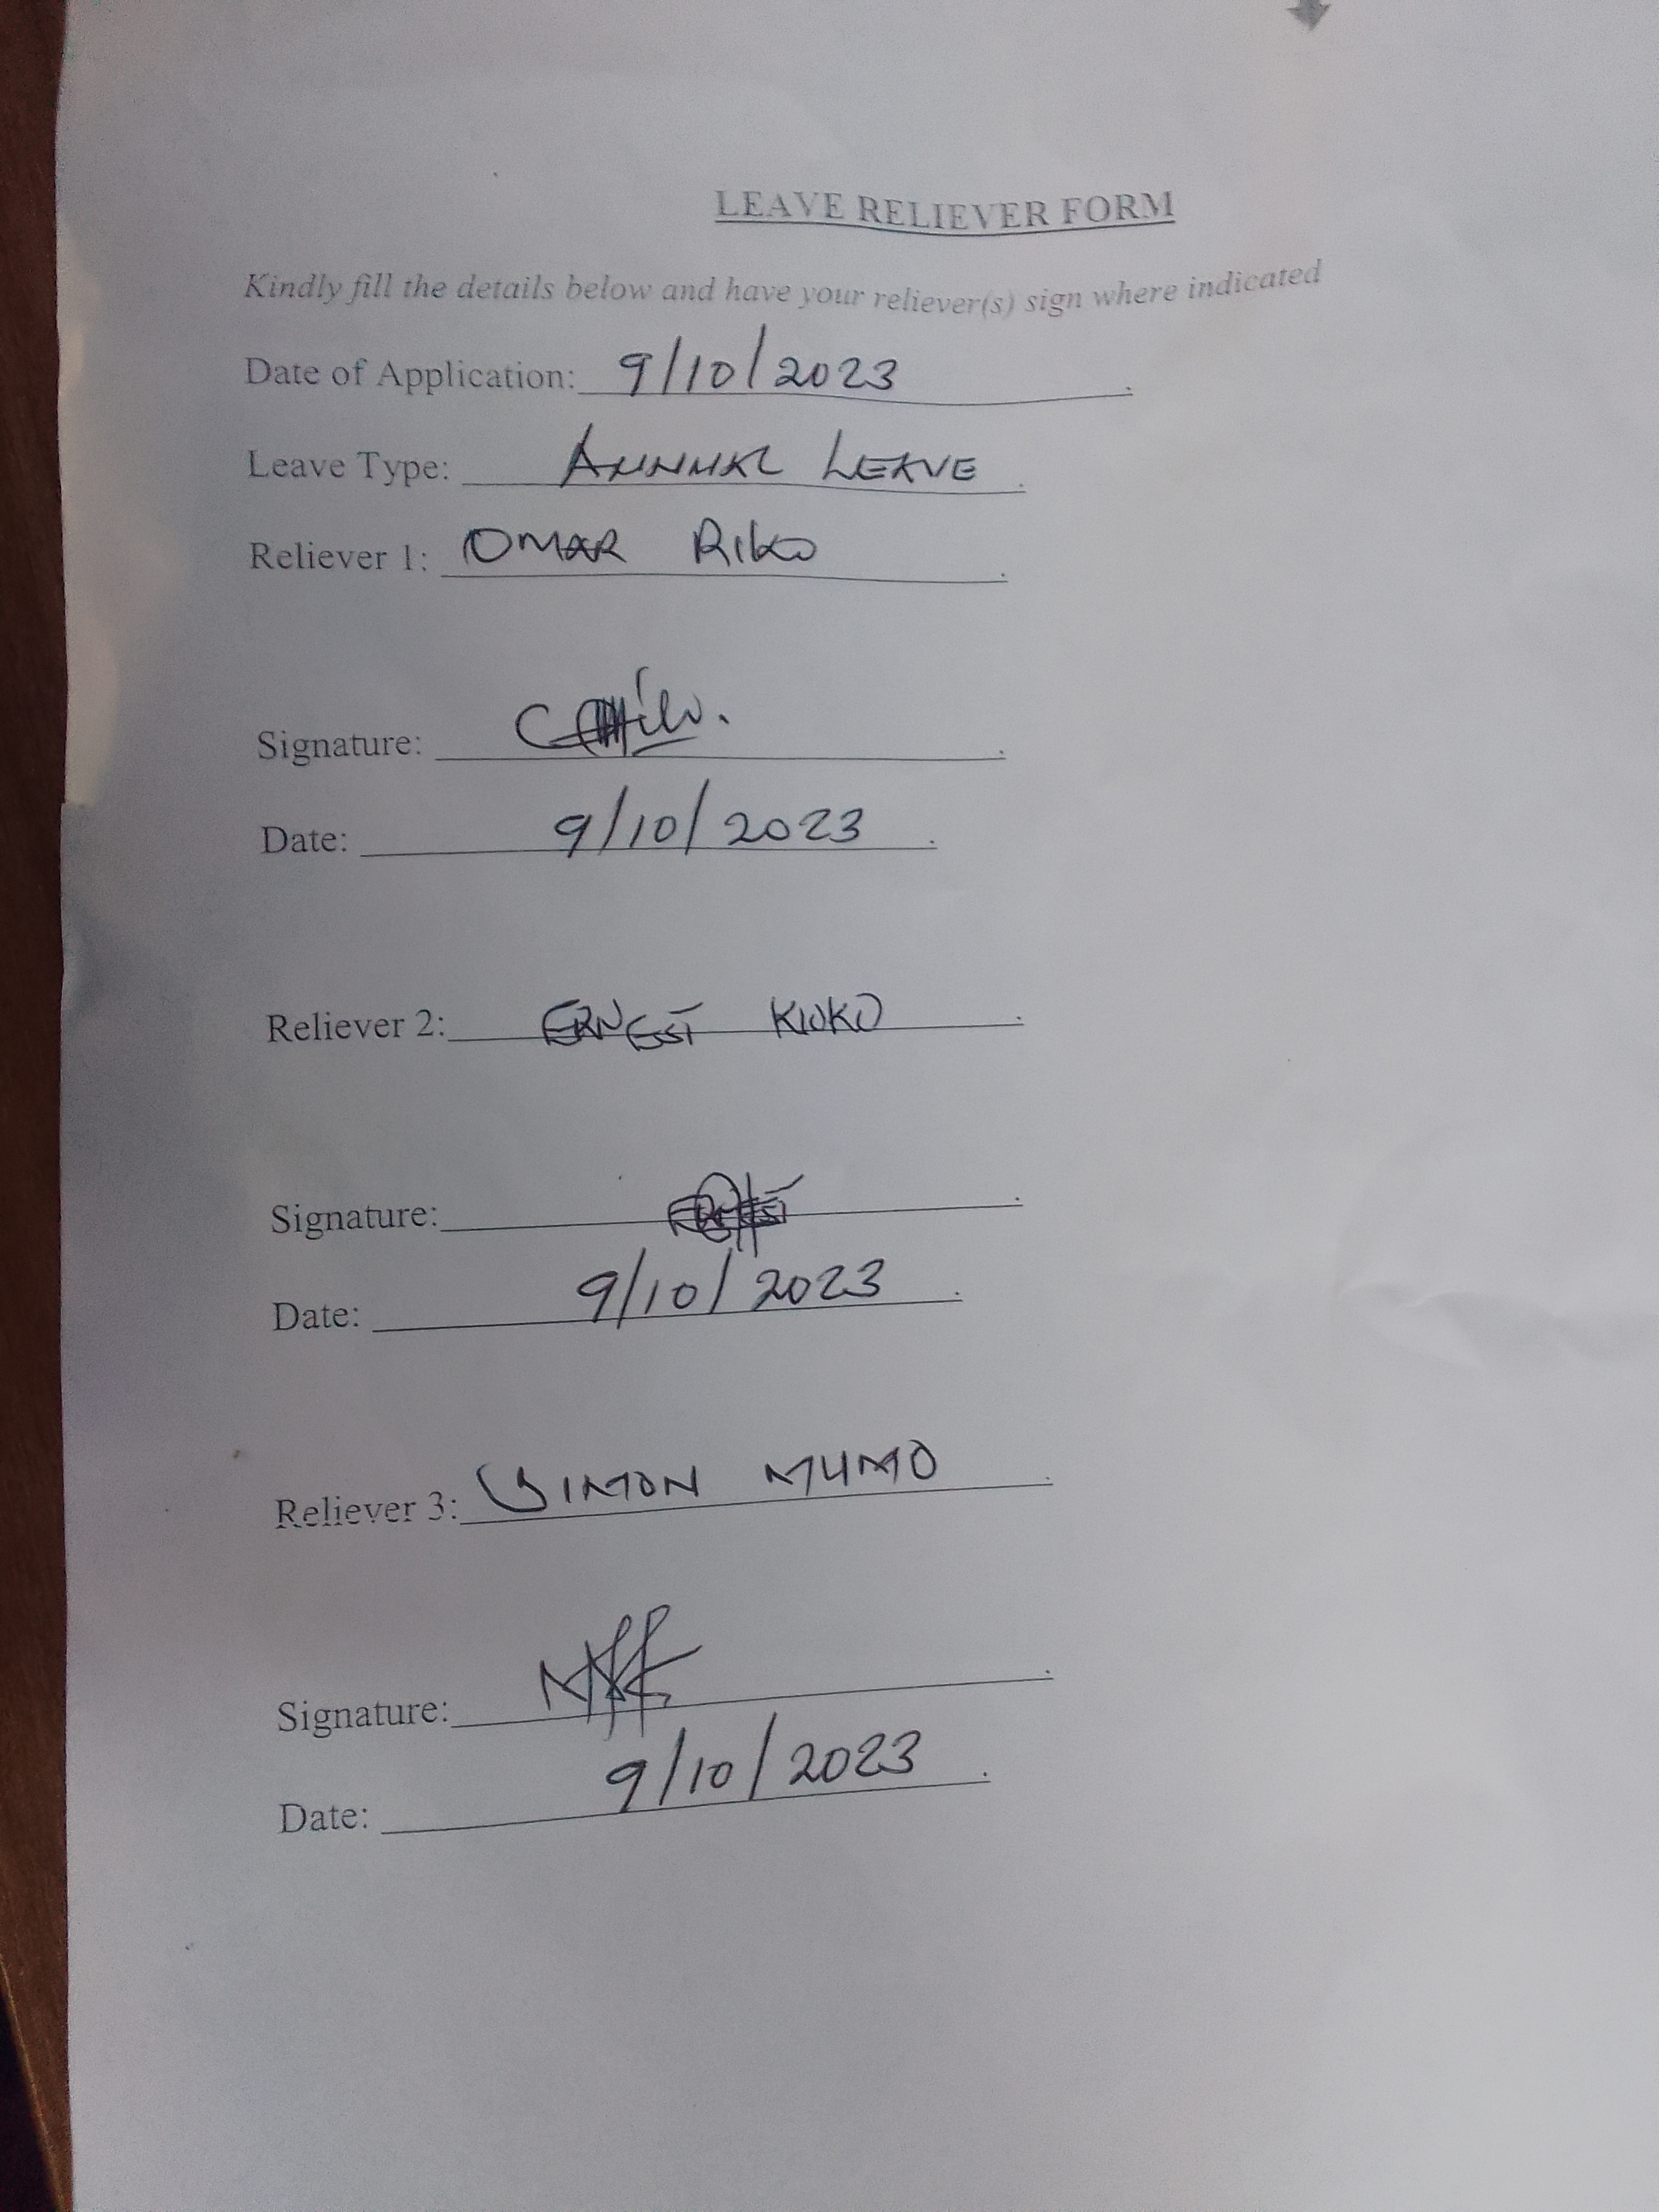 LEAVE RELIEVER FORM
Kindly fill the details below and have your reliever(s) sign where indicated
Date of Application: 9/10/2023.
Leave Type: ANNUAL LEAVE.
Reliever 1: OMAR RIKO.
Signature: .
Date: 9/10/2023.
Reliever 2: ERNEST KIOKO.
Signature: .
Date: 9/10/2023.
Reliever 3: SIMON MUMO.
Signature: .
Date: 9/10/2023.